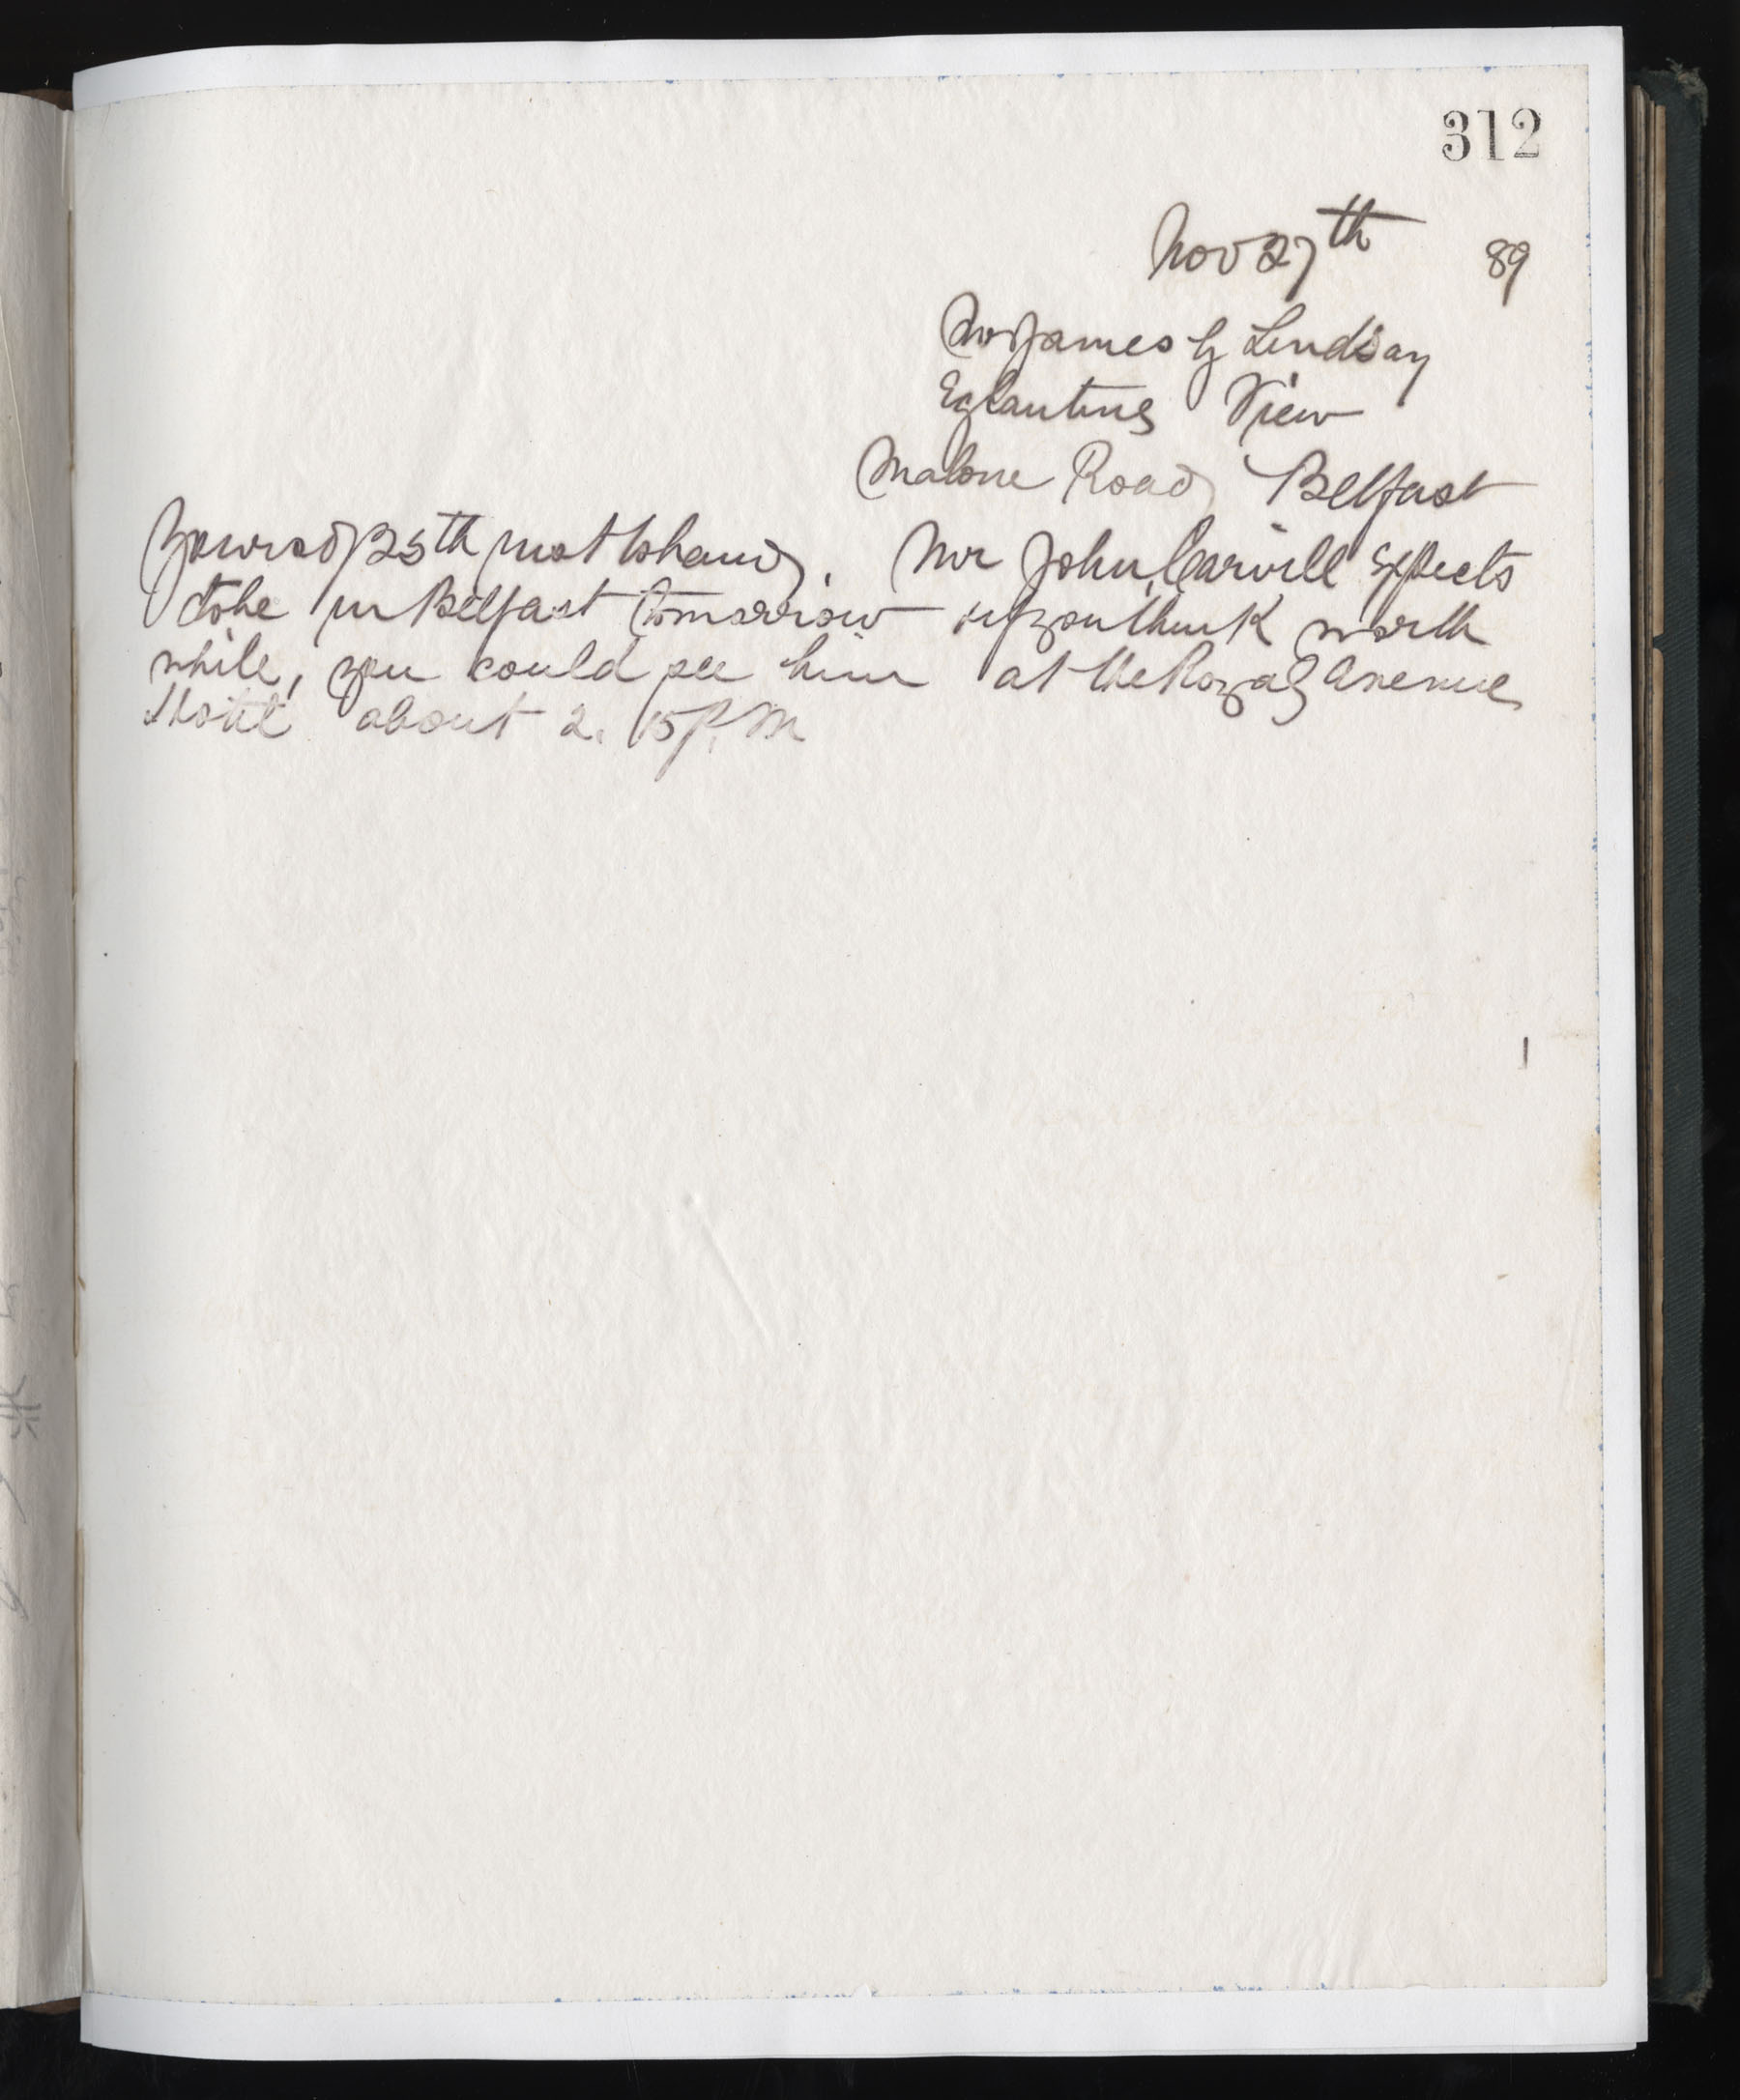 312
Nov 27th 89
Mr James G Lindsay
Eglantine View
Malone Road Belfast
Yours of 25th inst to hand. Mr John Carvill Expects
to be in Belfast tomorrow if you think worth
while, you could see him at the Royal Avenue
Hotel about 2.15 P.M